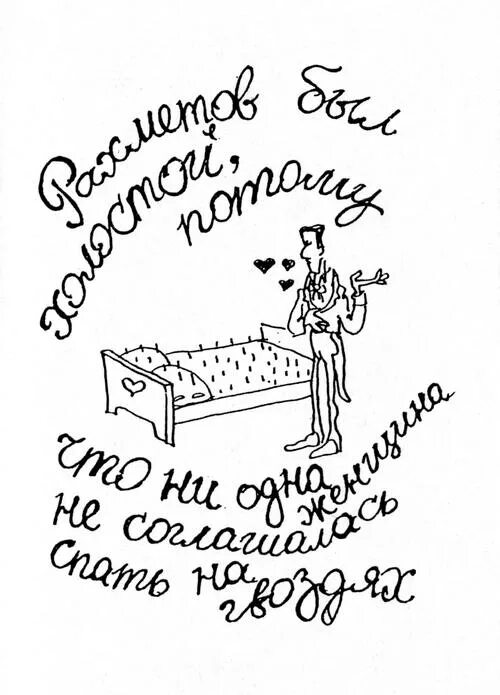 Рахметов был
холостой,
потому
что ни одна
женщина
не соглашалась
спать на
гвоздях